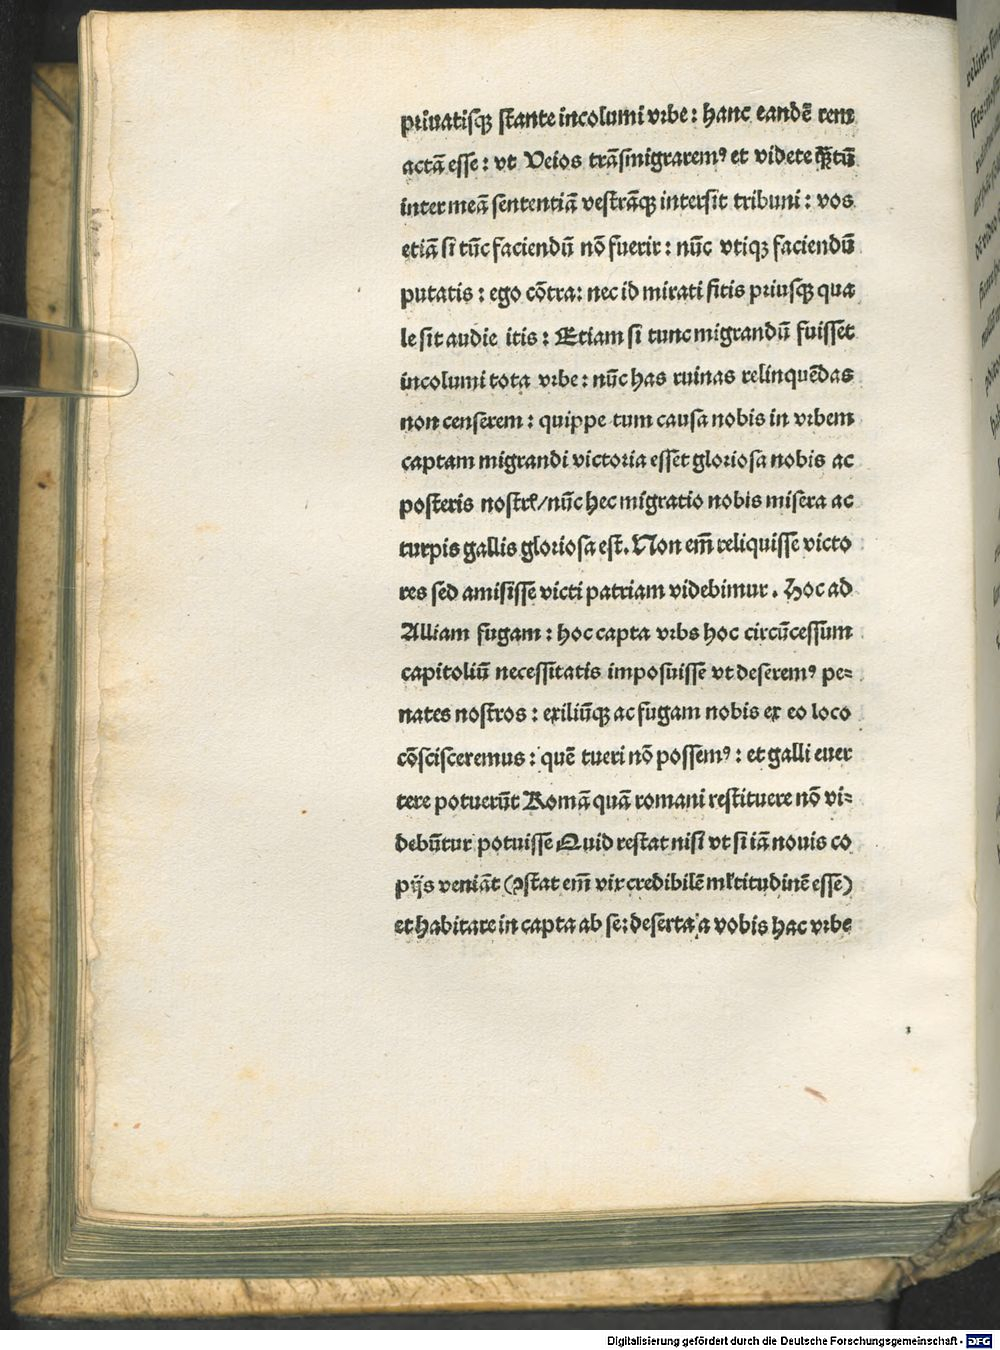 priuatisqꝫ stante incolumi vrbe: hanc eandē rem
actā esse: vt Veios trāsmigraremꝰ et videte q̄ꝫtū
inter meā sententiā vestrāqꝫ intersit tribuni: vos
etiā si tūc faciendū nō fuerit: nūc vtiqꝫ faciendū
putatis: ego cōtra: nec id mirati sitis priusqꝫ qua
le sit audie itis: Etiam si tunc migrandū fuisset
incolumi tota vrbe: nūc has ruinas relinquēdas
non censerem: quippe tum causa nobis in vrbem
captam migrandi victoria esset gloriosa nobis ac
posteris nostrꝭ/nūc hec migratio nobis misera ac
turpis gallis gloriosa est. Non em̄ reliquisse victo
res sed amisisse victi patriam videbimur. Hoc ad
Alliam fugam: hoc capta vrbs hoc circūcessum
capitoliū necessitatis imposuisse vt deseremꝰ pe=
nates nostros: exiliūqꝫ ac fugam nobis ex eo loco
cōscisceremus: quē tueri nō possemꝰ: et galli euer
tere potuerūt Romā quā romani restituere nō vi=
debūtur potuisse Quid restat nisi vt si iā nouis co
pijs veniāt (ꝯstat em̄ vix credibilē ml̄titudinē esse)
et habitare in capta ab se: deserta a vobis hac vrbe
Digitalisierung gefördert durch die Deutsche Forschungsgemeinschaft - DFG